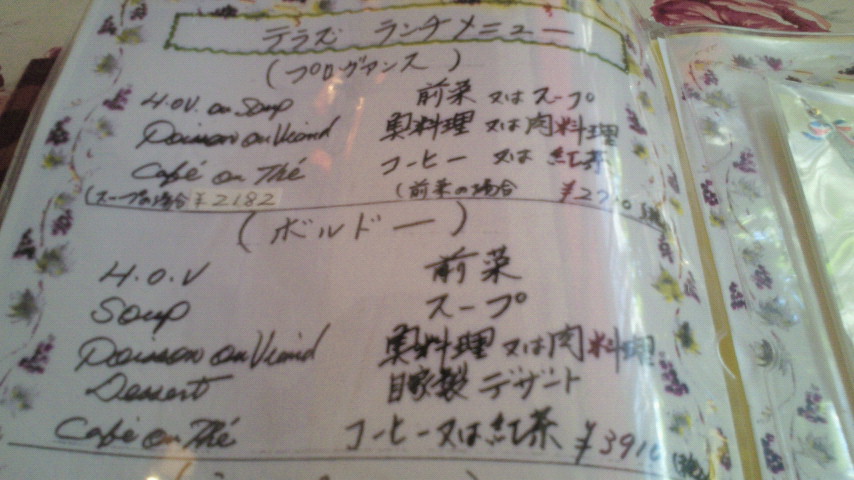 テラス ランチメニュー
(プロヴァンス)
H.O.V. ou Soup 前菜 又は スープ
Poisson ou Viand 魚料理 又は 肉料理
Café ou Thé コーヒー 又は 紅茶
(スープの場合 ¥2182 (前菜の場合
(ボルドー)
H.O.V 前菜
Soup スープ
Poisson ou Viand 魚料理 又は 肉料理
Dessert 自家製 デザート
Café ou Thé コーヒー又は紅茶